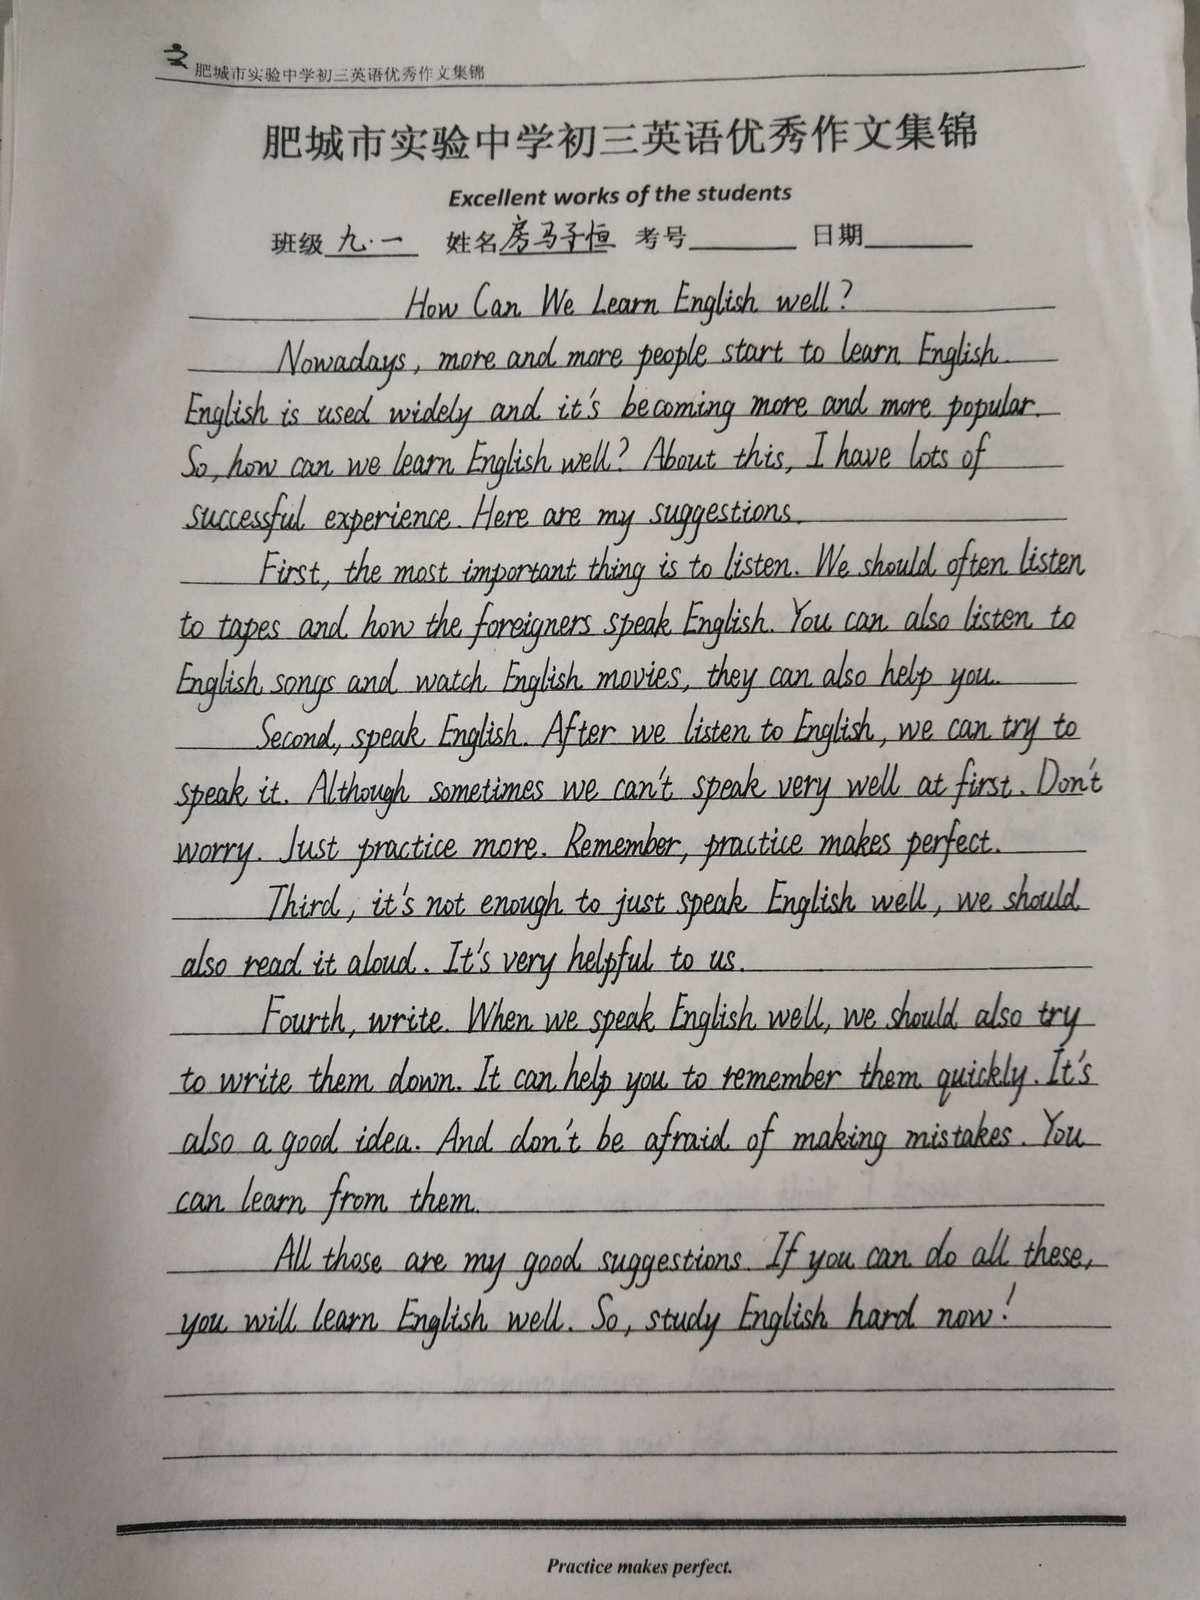 肥城市实验中学初三英语优秀作文集锦
肥城市实验中学初三英语优秀作文集锦
Excellent works of the students
班级 九.一 姓名 房马子恒 考号 日期
How Can We Learn English well?
Nowadays, more and more people start to learn English.
English is used widely and it's becoming more and more popular.
So, how can we learn English well? About this, I have lots of
successful experience. Here are my suggestions.
First, the most important thing is to listen. We should often listen
to tapes and how the foreigners speak English. You can also listen to
English songs and watch English movies, they can also help you.
Second, speak English. After we listen to English, we can try to
speak it. Although sometimes we can't speak very well at first. Don't
worry. Just practice more. Remember, practice makes perfect.
Third, it's not enough to just speak English well, we should
also read it aloud. It's very helpful to us.
Fourth, write. When we speak English well, we should also try
to write them down. It can help you to remember them quickly. It's
also a good idea. And don't be afraid of making mistakes. You
can learn from them.
All those are my good suggestions. If you can do all these,
you will learn English well. So, study English hard now!
Practice makes perfect.